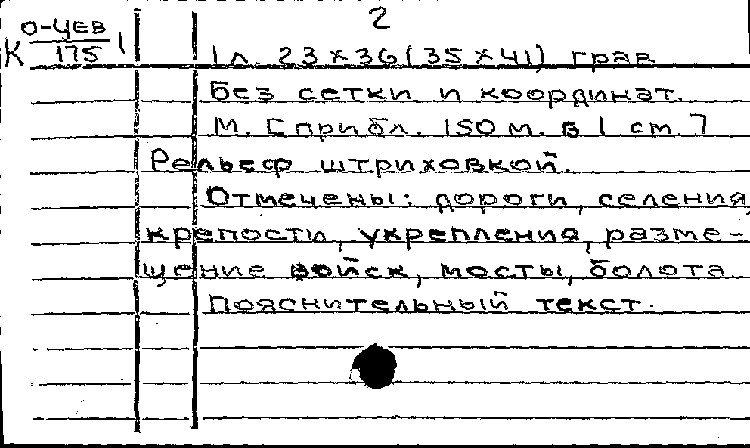 2
К О-ЦЕВ/175 1
1 л. 23×36 (35×41) грав
Без сетки и координат.
М. [прибл. 150 м. в 1 см.]
Рельеф штриховкой.
Отмечены: дороги, селения,
крепости, укрепления, разме-
щение войск, мосты, болота
Пояснительный текст.